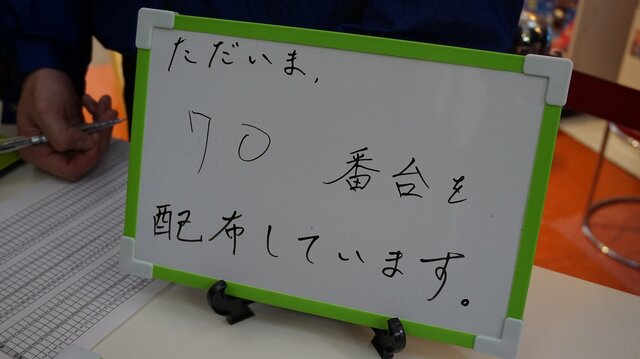 ただいま,
70 番台を
配布しています。